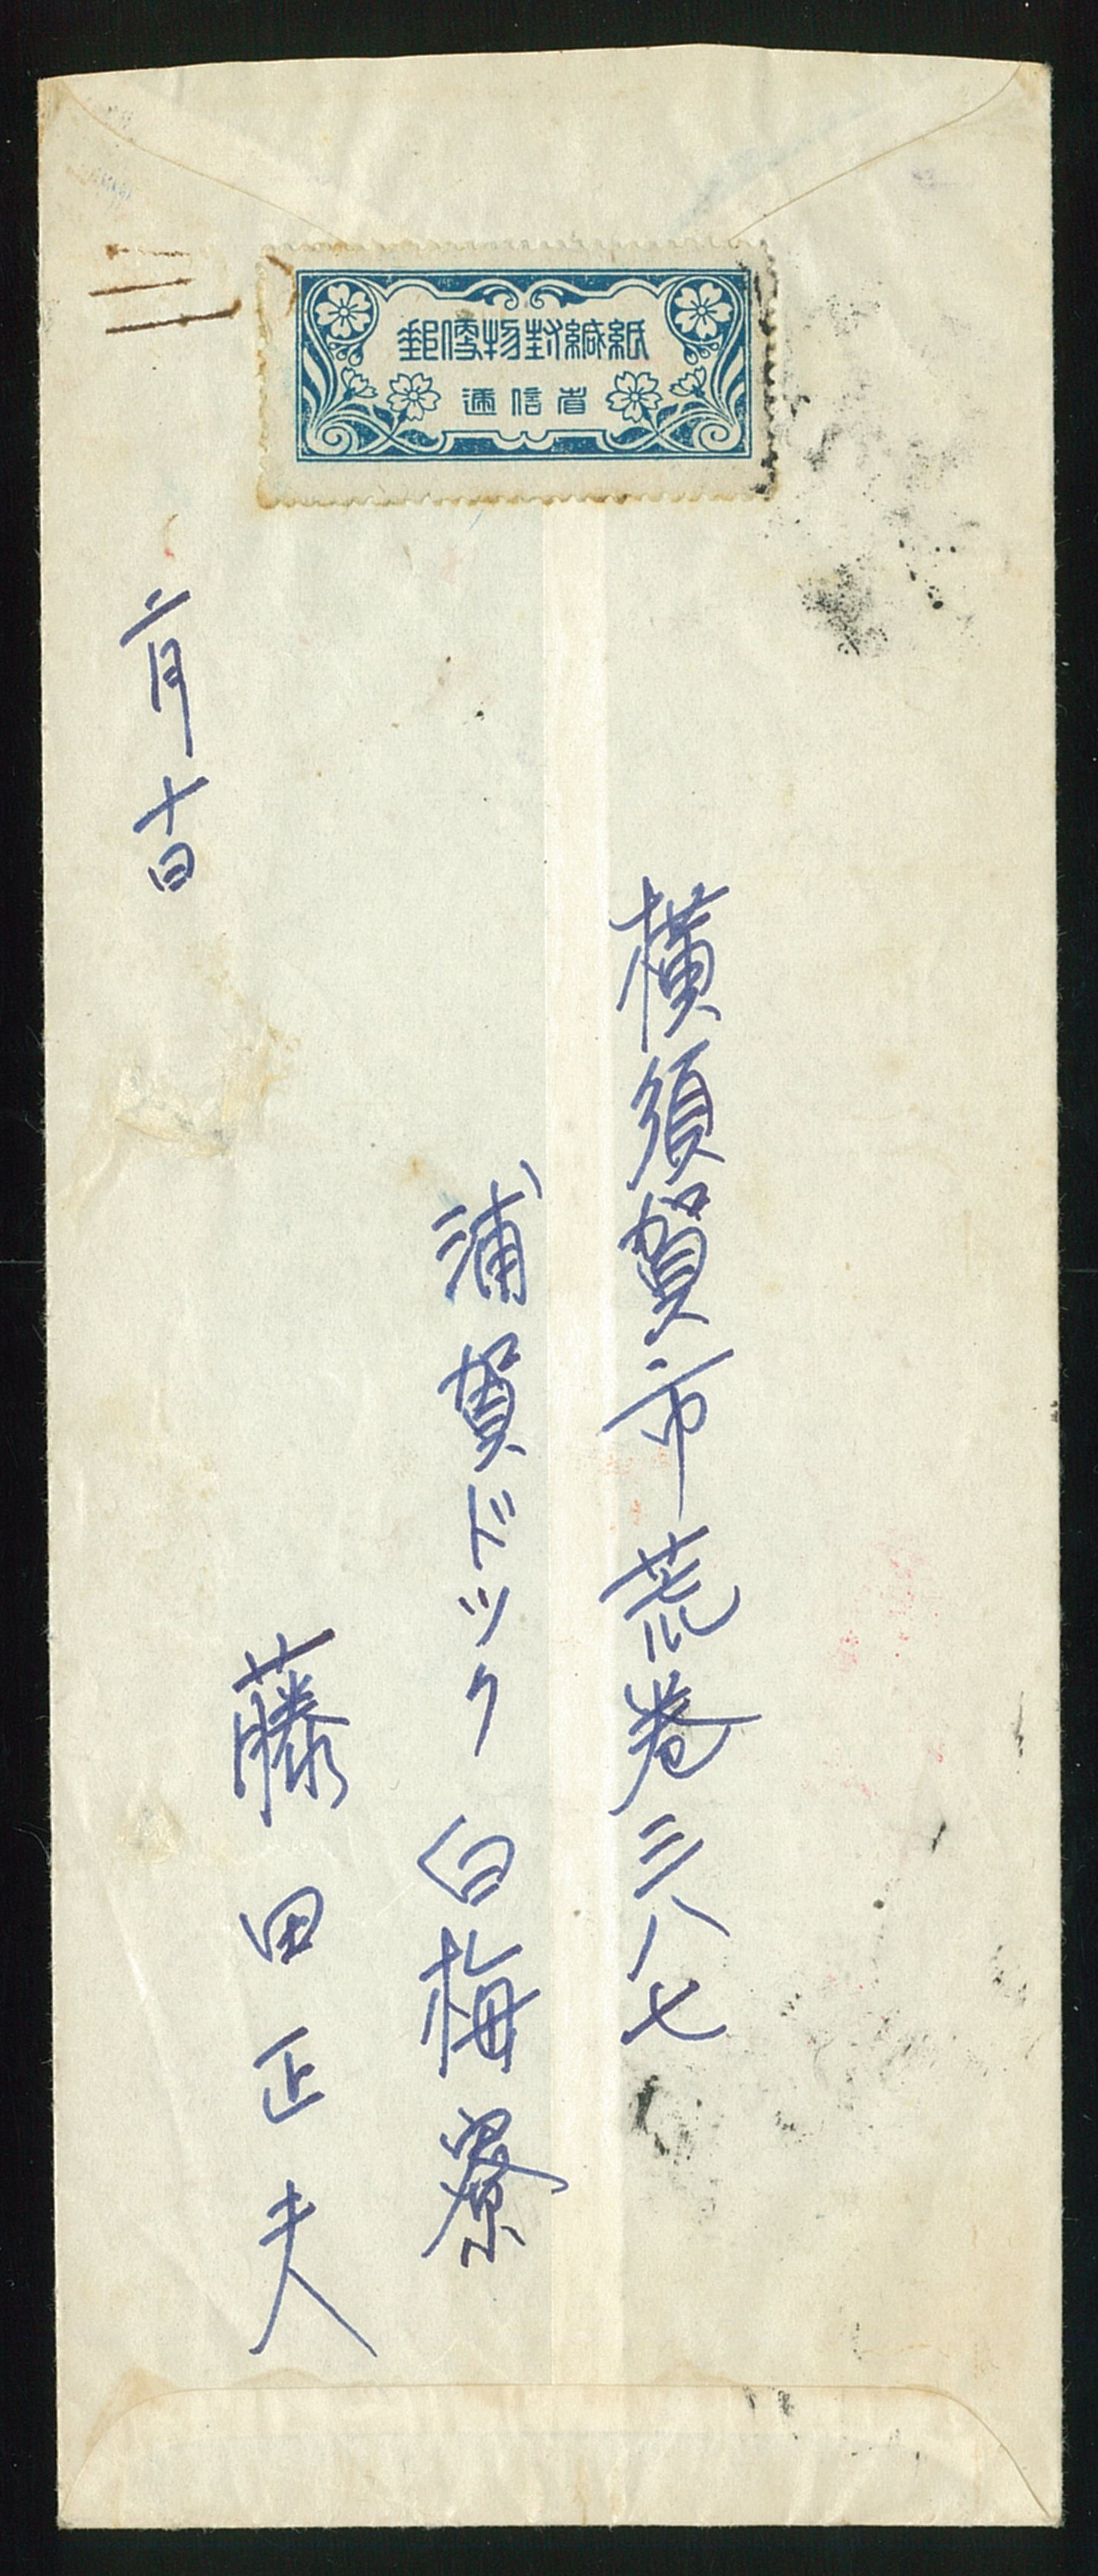 郵便物封緘紙
逓信省
横須賀市荒巻三八七
浦賀ドック白梅寮
藤田正夫
六月十日